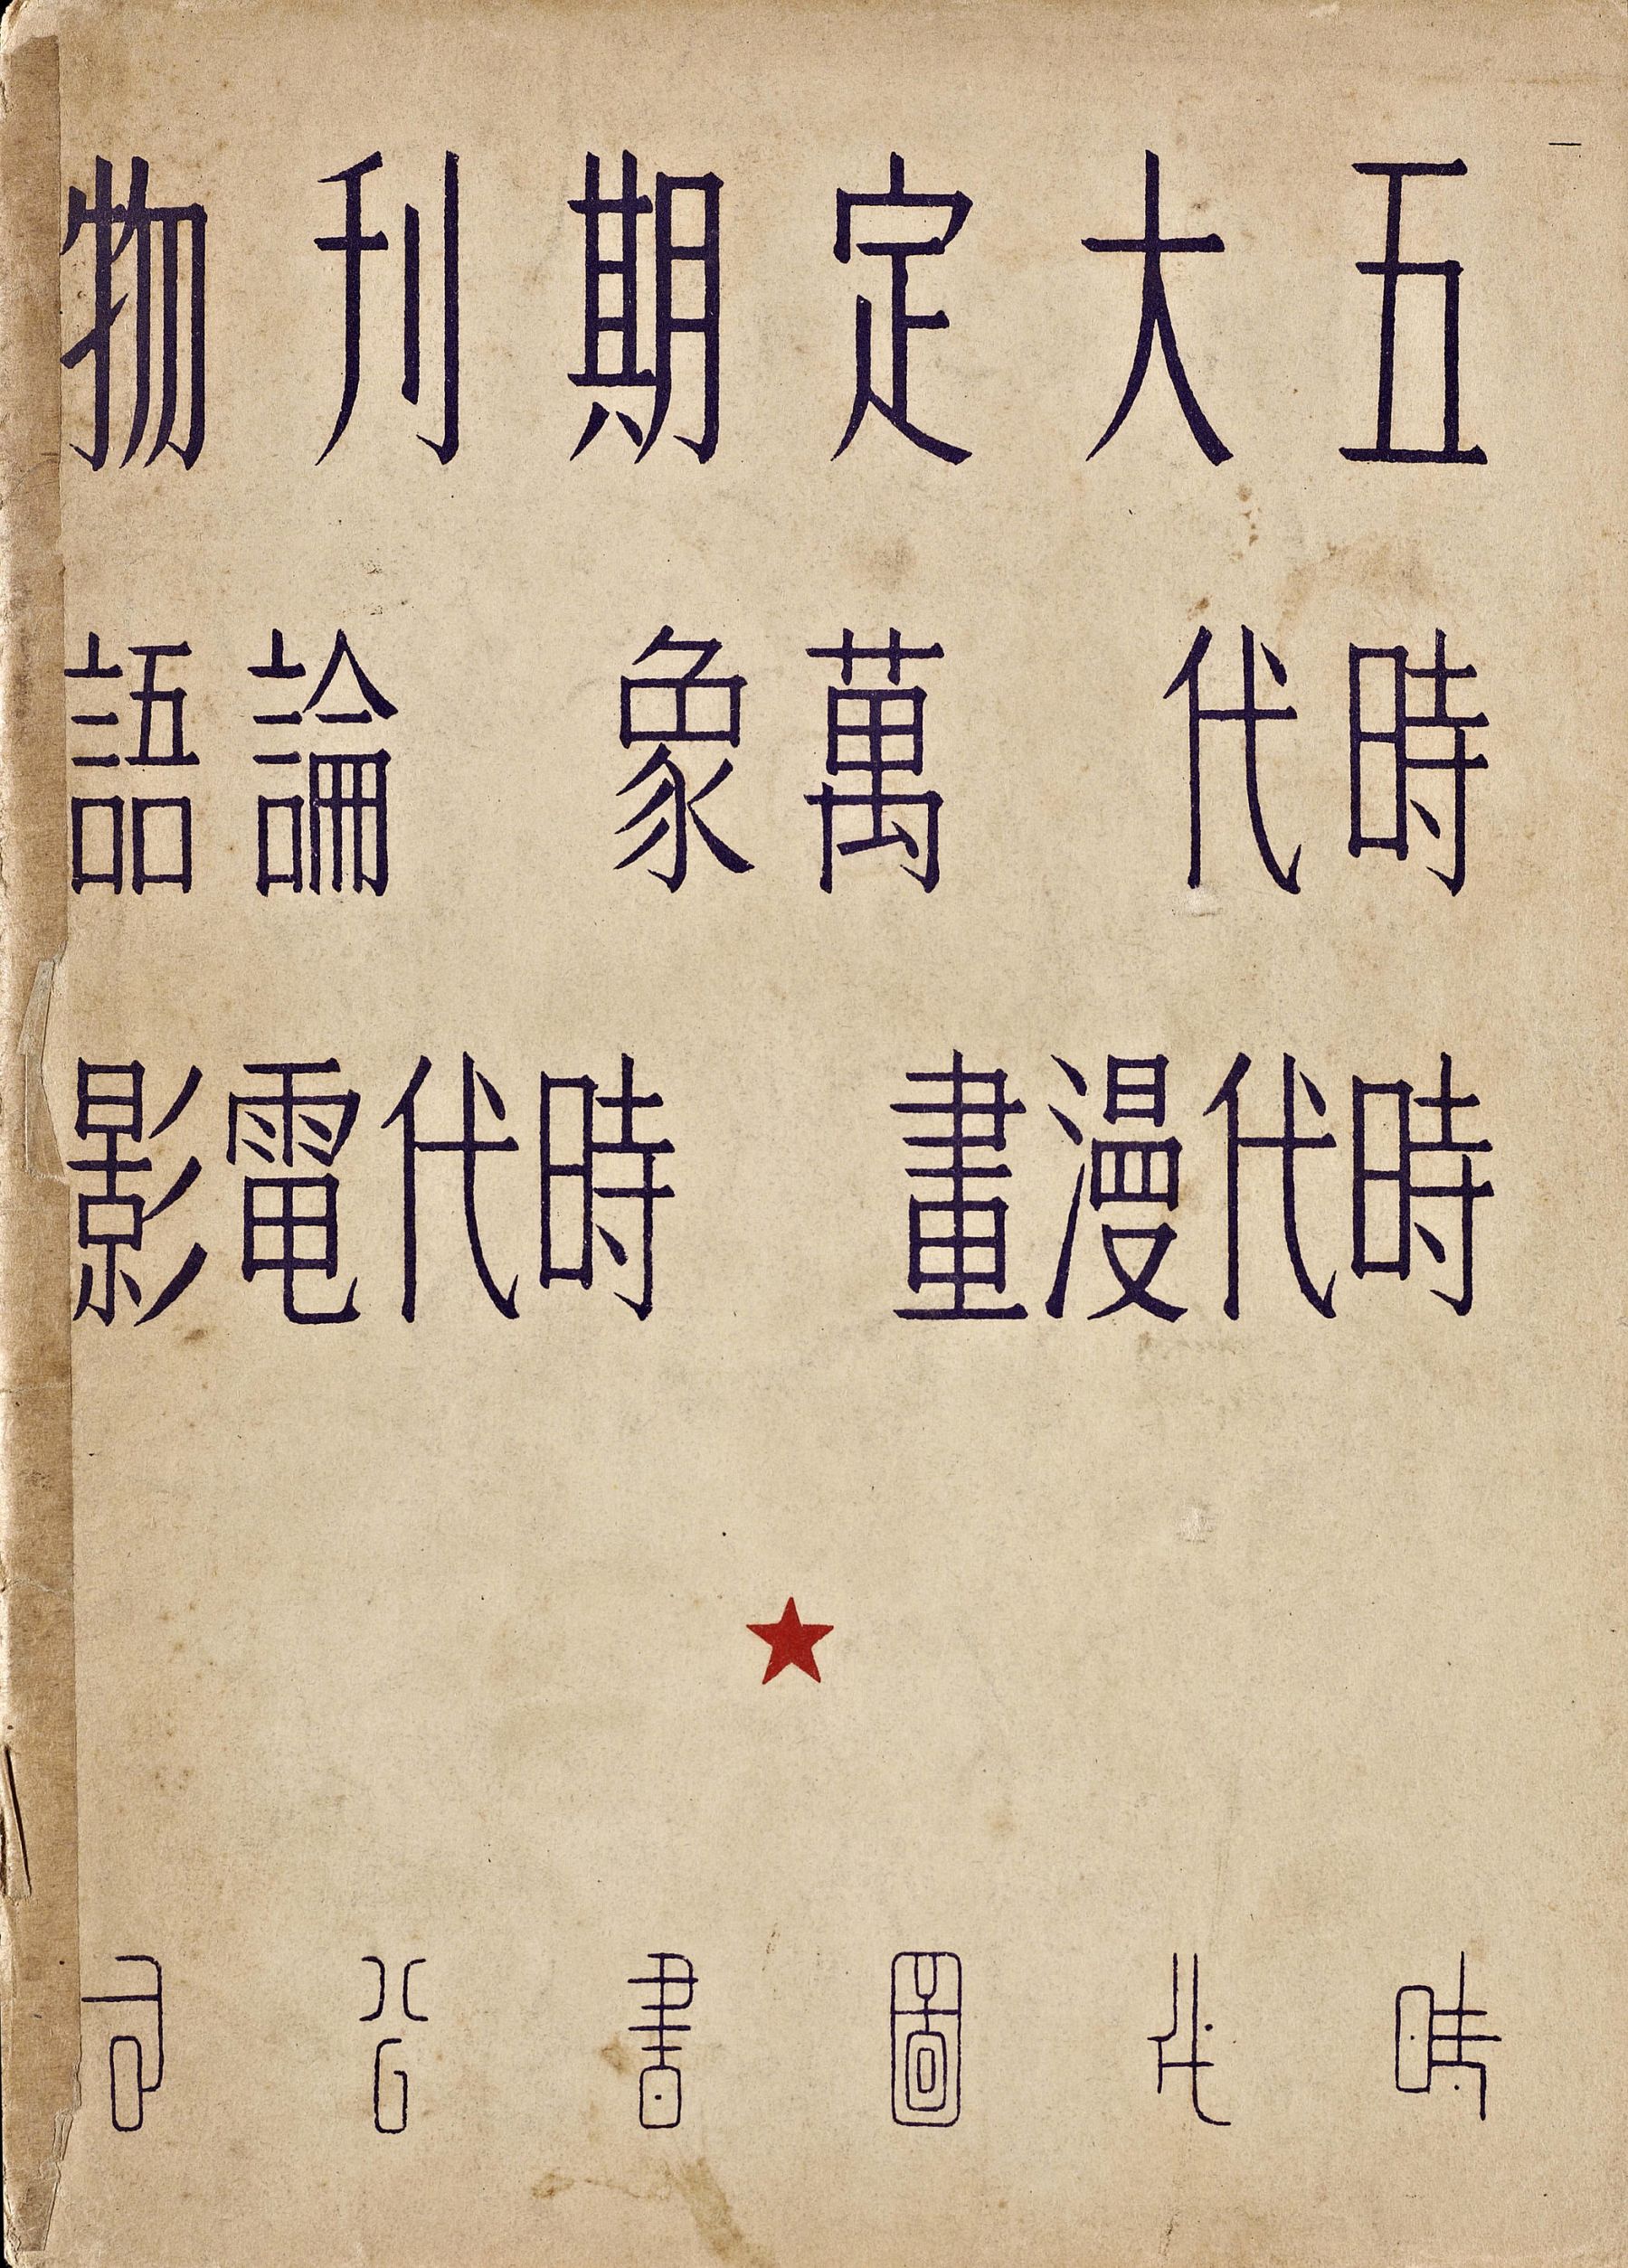 五大定期刊物
時代 萬象 論語
時代漫畫 時代電影
時代圖書公司